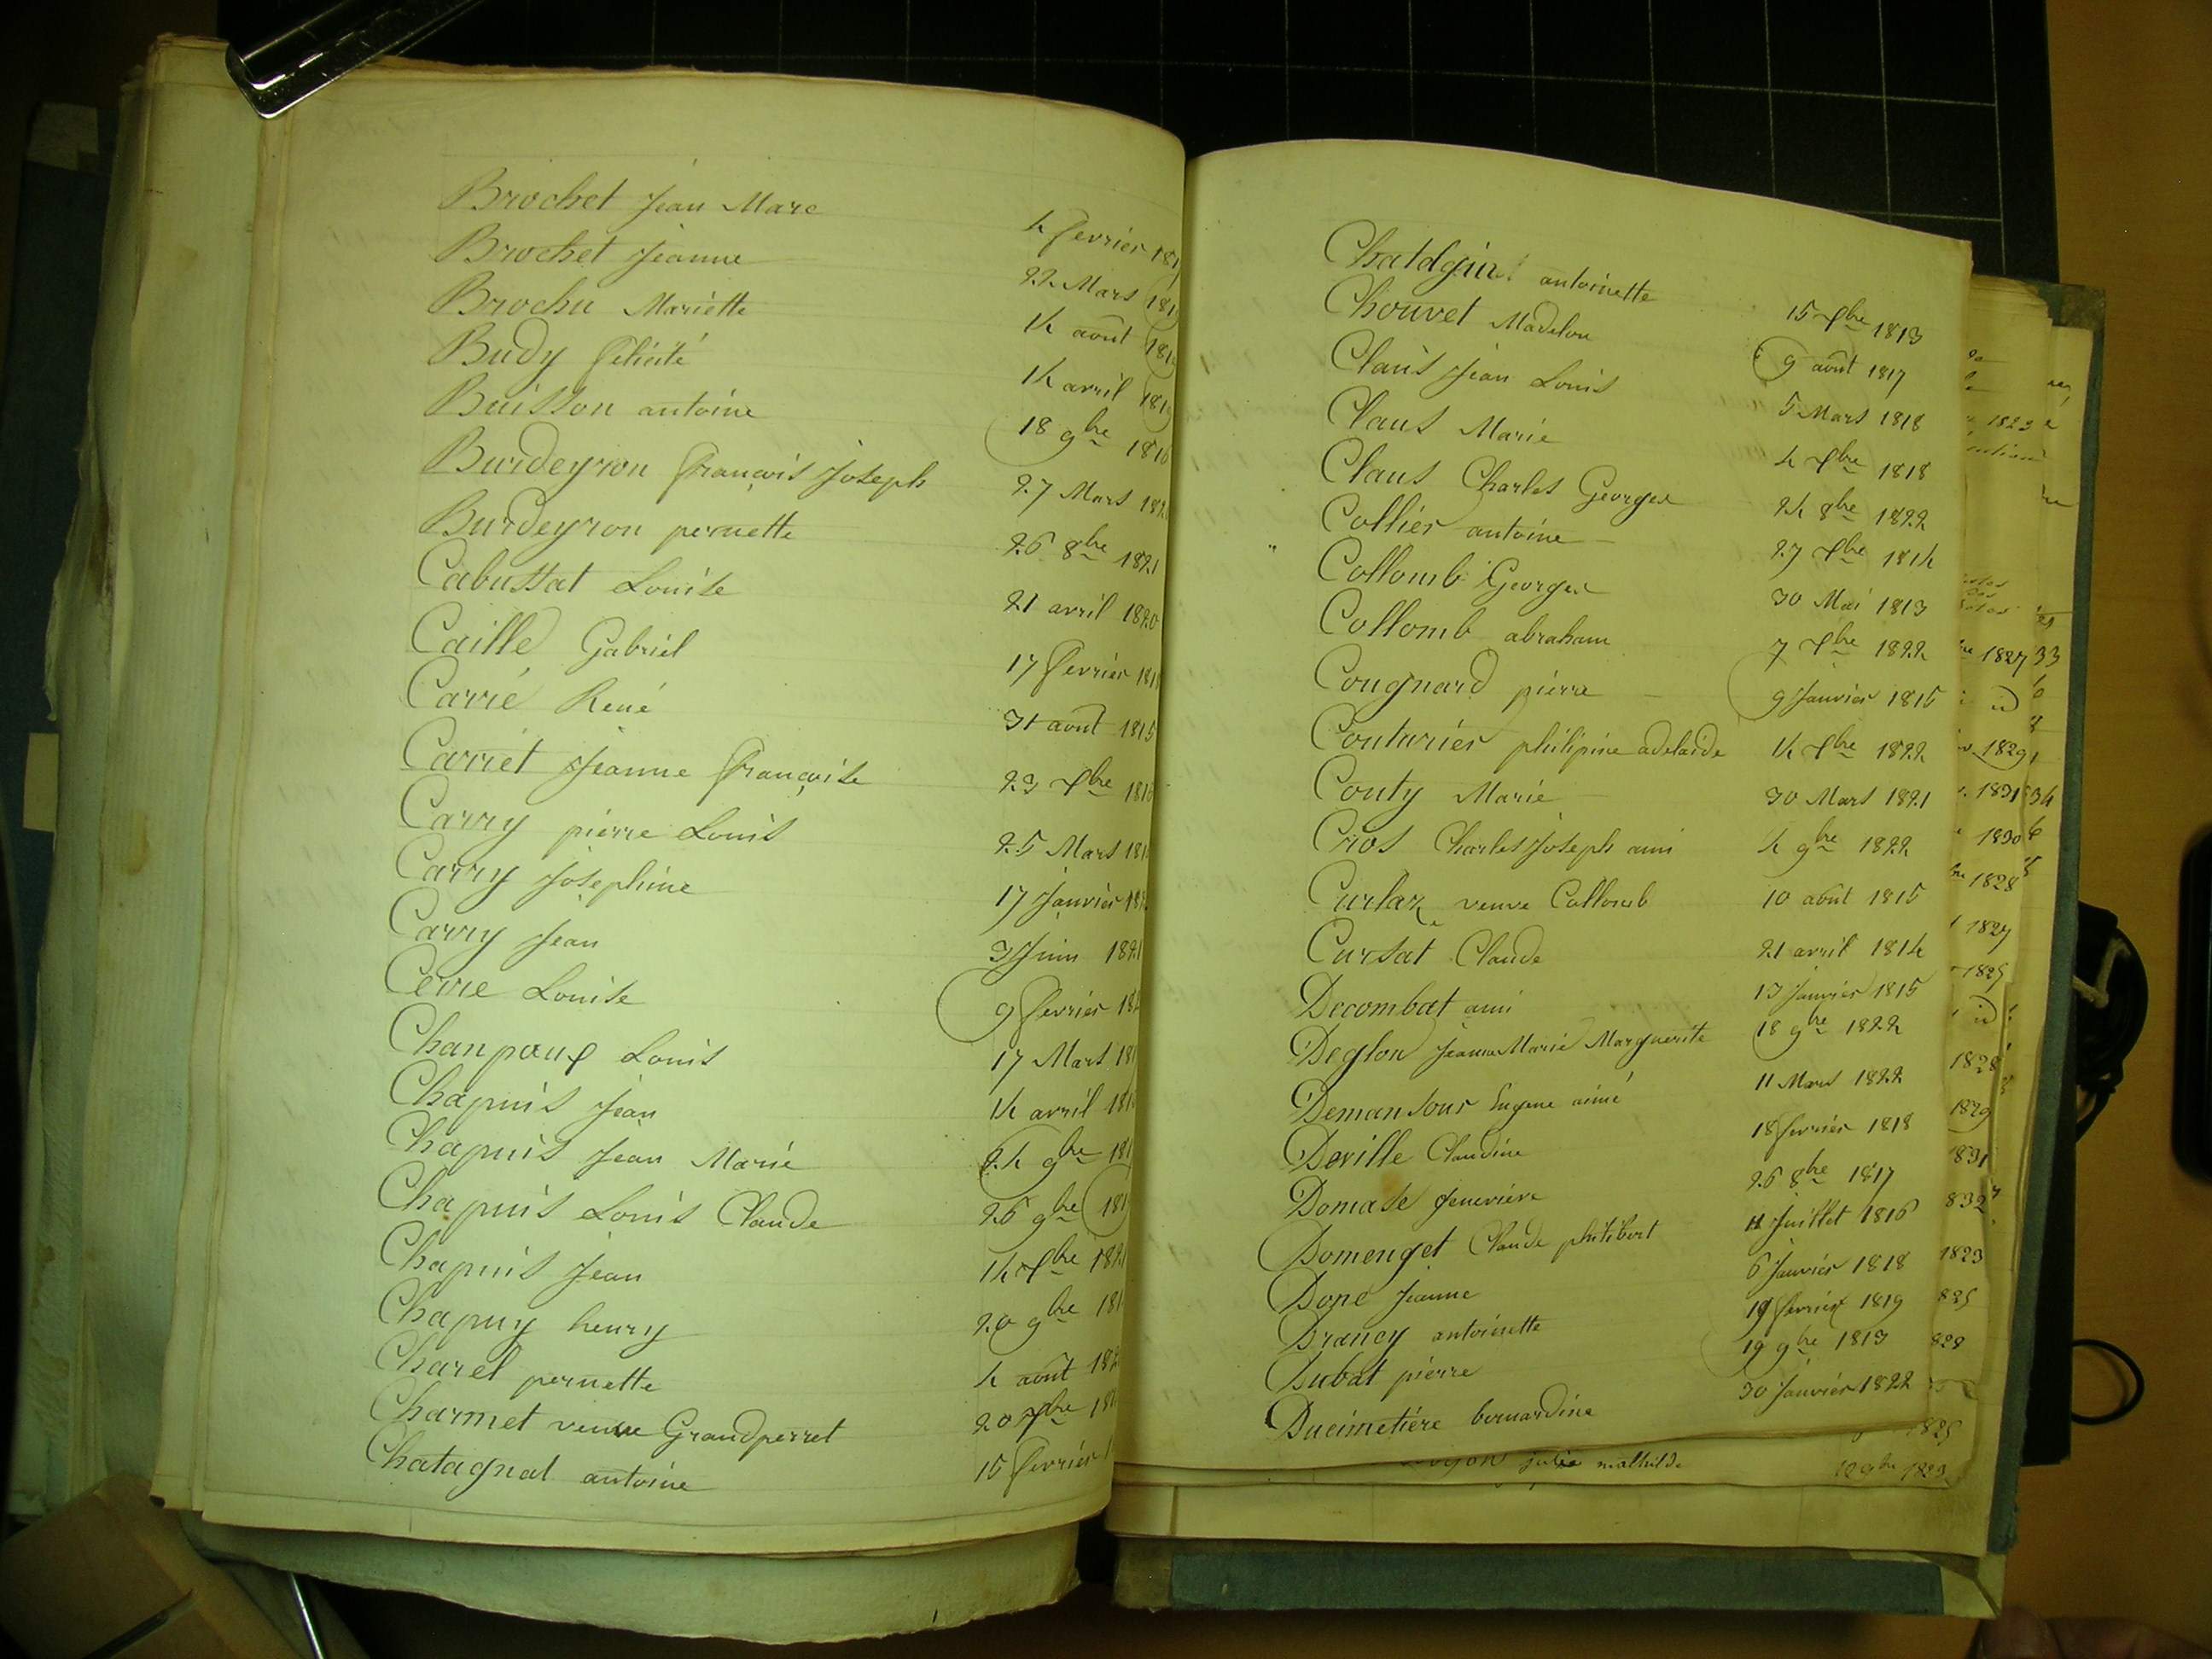 Brochet Jean Marc 4 fevrier 181
Brochet Jeanne 22 Mars 181
Brochu Mariette 14 août 181
Budy felicité 14 avril 181
Buisson antoine 18 9bre 1816
Burdeyron françois Joseph 27 Mars 182
Burdeyron pernette 26 8bre 1821
Cabussat Louise 21 avril 1820
Caille Gabriel 17 fevrier 181
Carrié René 31 août 1815
Carriet Jeanne françoise 23 Xbre 1816
Carry pierre Louis 25 Mars 181
Carry Josephine 17 Janvier 18
Carry Jean 3 Juin 1821
Cerre Louise 9 fevrier 18
Chanpaux Louis 17 Mars 181
Chapuis Jean 14 avril 181
Chapuis Jean Marie 24 9bre 181
Chapuis Louis Claude 26 9bre 181
Chapuis Jean 14 Xbre 1821
Chapuy henry 20 9bre 181
Charel pernette 4 août 182
Charmet veuve Grandperret 20 7bre 181
Chatagnat antoine 15 fevrier 1
antoinette 15 Xbre 1813
Chouvet Madelon 9 août 1817
Claus Jean Louis 5 Mars 1818
Claus Marie 4 Xbre 1818
Claus Charles Georges 24 8bre 1822
Collier antoine 27 Xbre 1814
Collomb Georges 30 Mai 1813
Collomb abraham 7 Xbre 1822
Cougnard pierre 9 Janvier 1815
Couturier philipine adelaide 14 Xbre 1822
Couty Marie 30 Mars 1821
Cros Charles Joseph ami 4 9bre 1822
Curlaz veuve Collomb 10 août 1815
Cursat Claude 21 avril 1814
Decombat ami 13 Janvier 1815
Deglon Jeanne Marie Marguerite 18 9bre 1822
Demansour Eugene aimé 11 Mars 1822
Deville Claudine 18 fevrier 1818
Domase Genevieve 26 8bre 1817
Domenget Claude philibert 11 Juillet 1816
Dopé Jeanne 6 Janvier 1818
Drancy antoinette 19 fevrier 1819
Dubat pierre 19 9bre 1813
Ducimetiére bernardine 30 Janvier 1822
julie mathilde 12 9bre 1823
1823
1827 33
1829
1831 34
1830
1828
1827
1825
1828
1829
1831
832
1823
825
828
1825